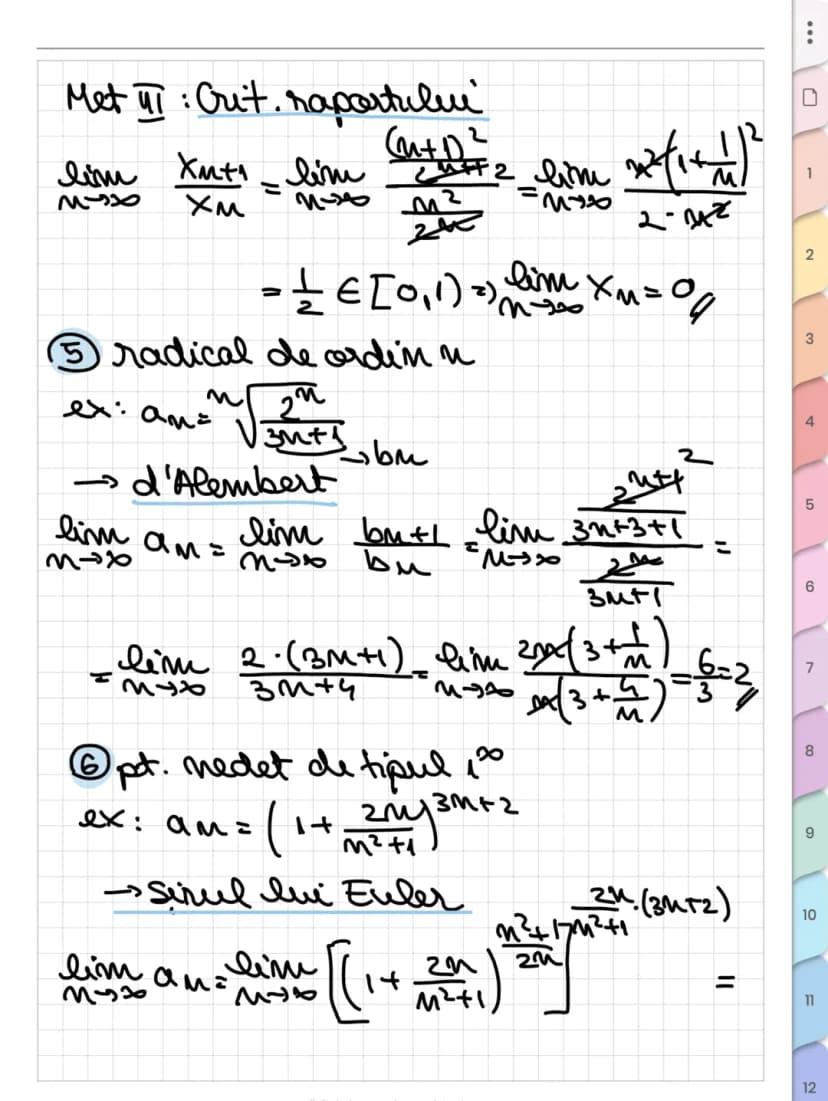 Met III : Crit. raportului
lim n→∞ xn+1/xn = lim n→∞ ((n+1)²/2ⁿ⁺¹ 2)/(n²/2ⁿ) = lim n→∞ n²(1+1/n)²/(2·n²)
= 1/2 ∈ [0,1) => lim n→∞ xn = 0
⑤ radical de ordin n
ex: an = ⁿ√(2ⁿ/(3n+1)) → bn
→ d'Alembert
lim n→∞ an = lim n→∞ bn+1/bn = lim n→∞ (2ⁿ⁺¹ 2/(3n+3+1))/(2ⁿ/(3n+1)) =
= lim n→∞ 2·(3n+1)/(3n+4) = lim n→∞ 2n(3+1/n)/(n(3+4/n)) = 6/3 = 2
⑥ pt. nedet de tipul 1^∞
ex: an = (1+2n/(n²+1))^(3n+2)
→ Șirul lui Euler
lim n→∞ an = lim n→∞ [(1+2n/(n²+1))^((n²+1)/2n)]^(2n/(n²+1)·(3n+2)) =
1
2
3
4
5
6
7
8
9
10
11
12